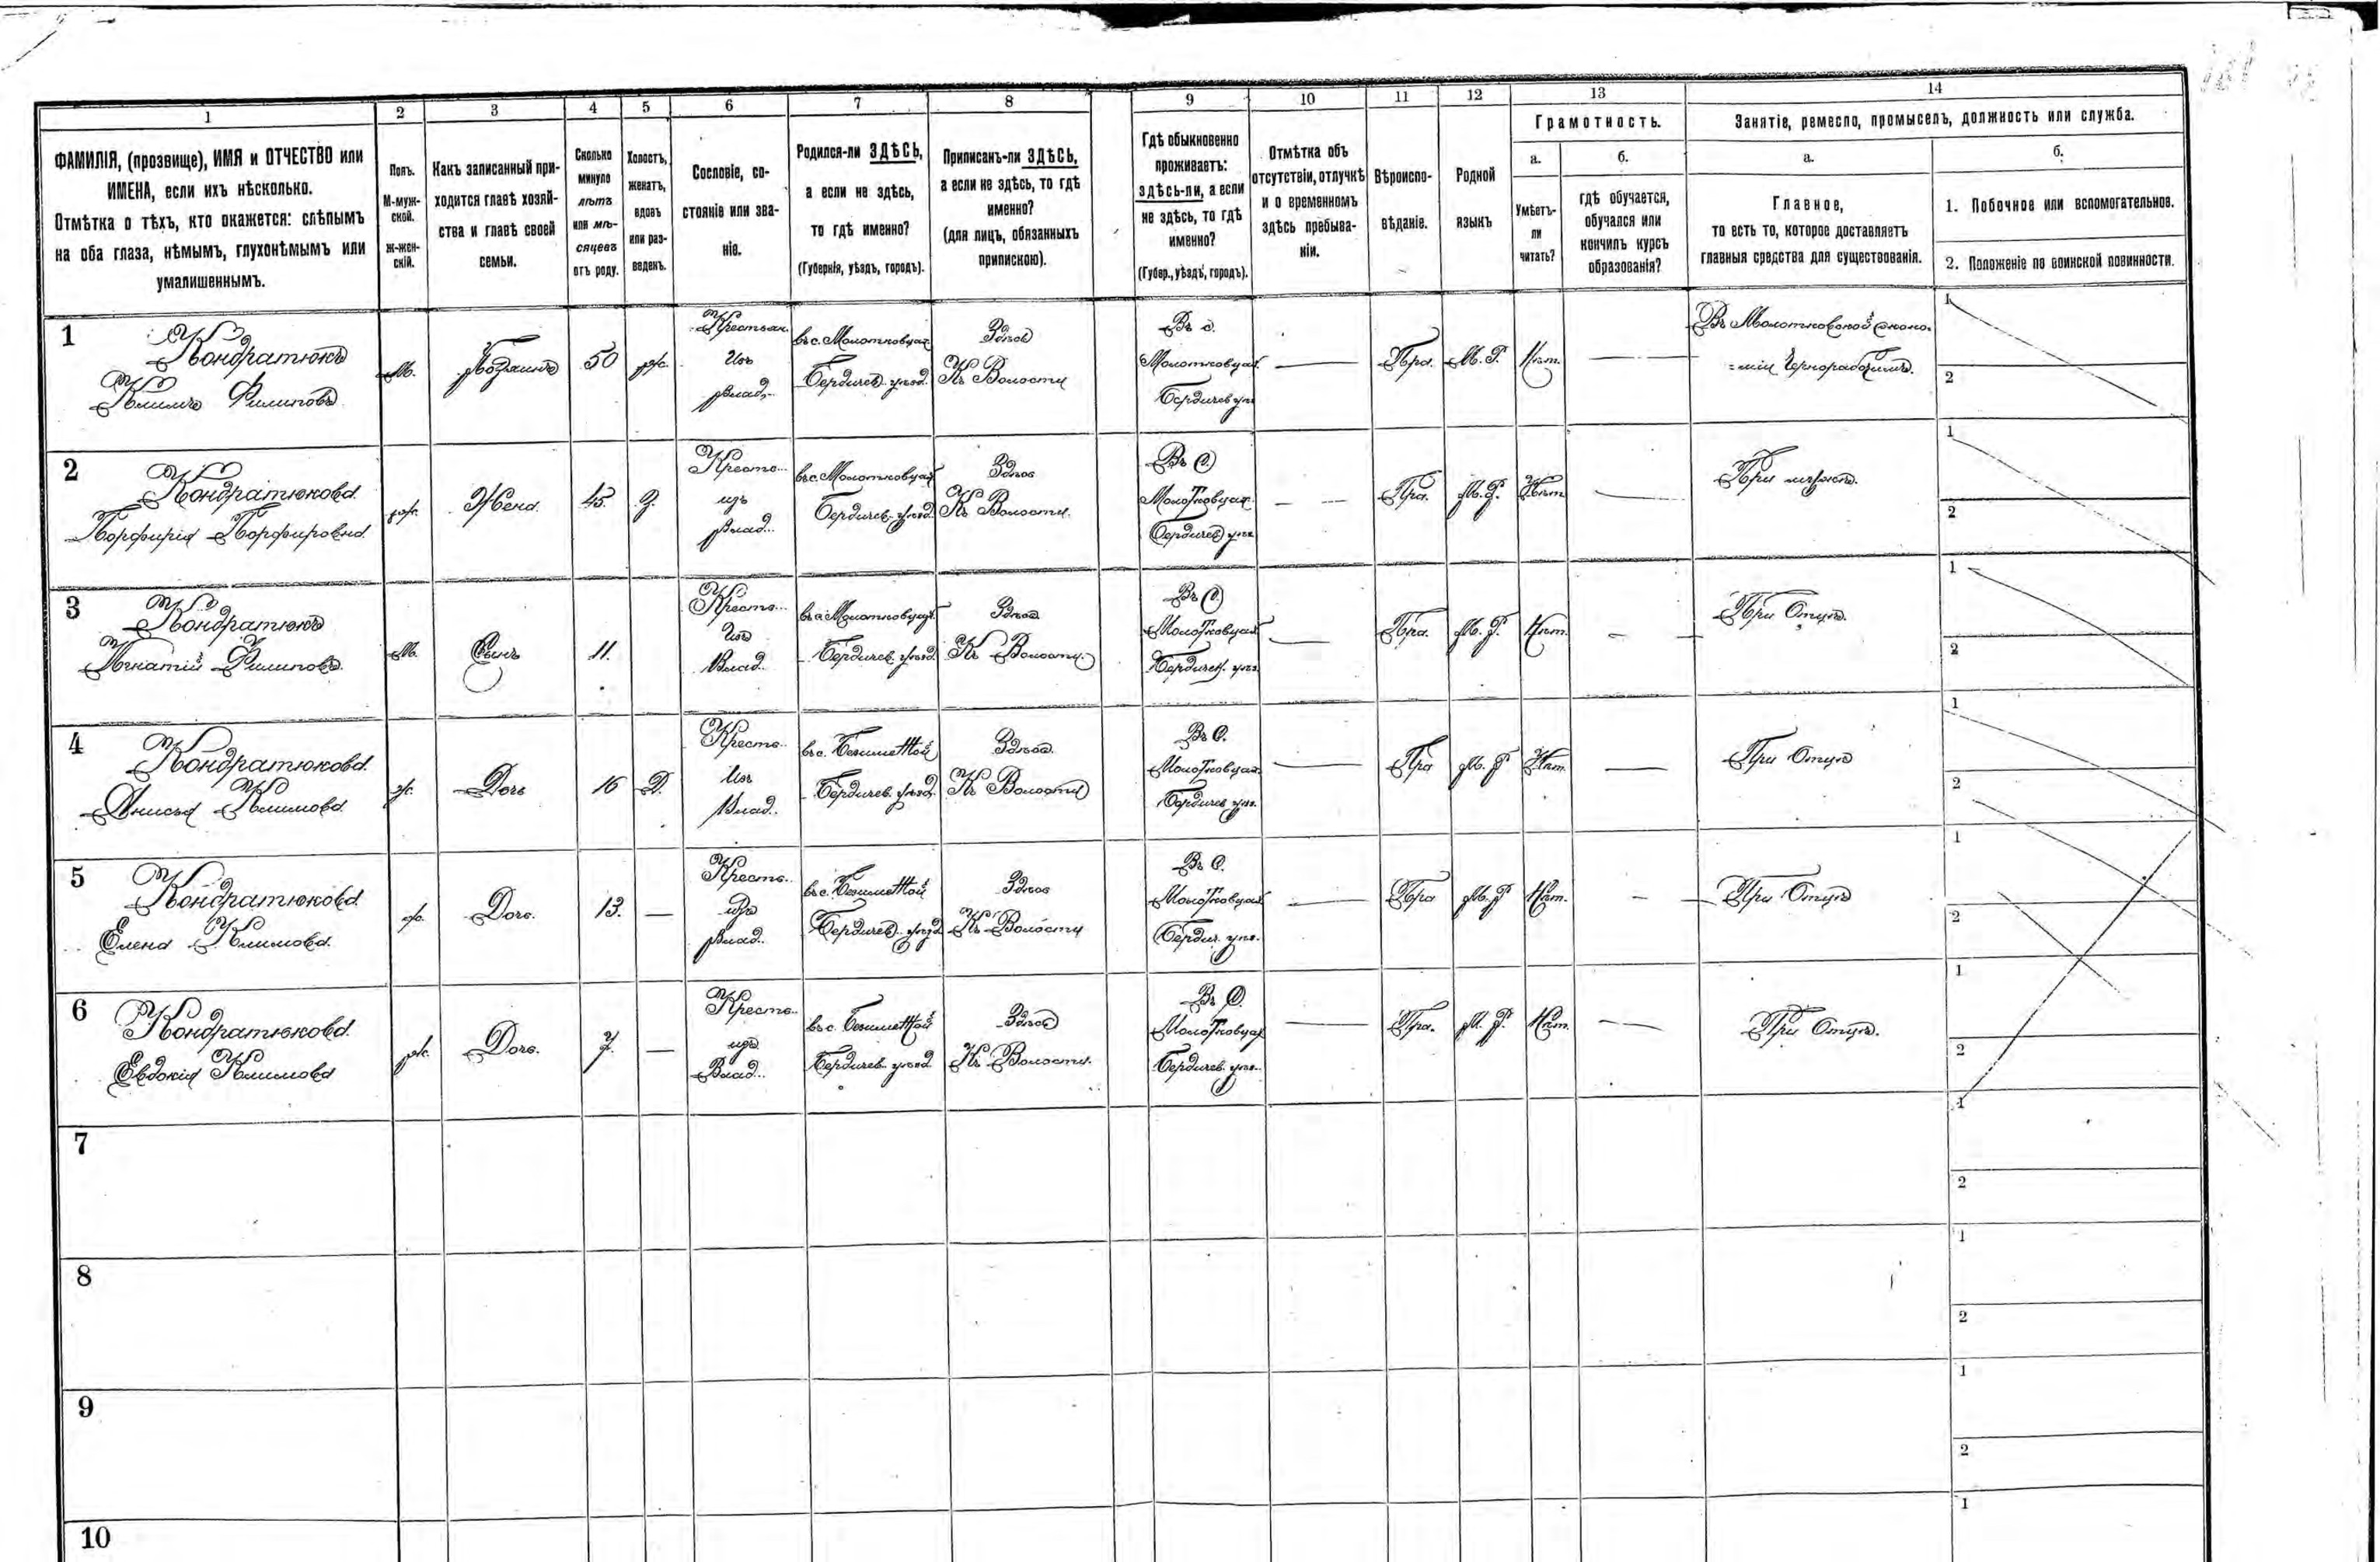 1 2 3 4 5 6 7 8 9 10 11 12 13 14
ФАМИЛІЯ, (прозвище), ИМЯ и ОТЧЕСТВО или
ИМЕНА, если ихъ нѣсколько.
Отмѣтка о тѣхъ, кто окажется: слѣпымъ
на оба глаза, нѣмымъ, глухонѣмымъ или
умалишеннымъ.
Полъ.
М-муж-
ской.
ж-жен-
скій.
Какъ записанный при-
ходится главѣ хозяй-
ства и главѣ своей
семьи.
Сколько
минуло
лѣтъ
или мѣ-
сяцевъ
отъ роду.
Холостъ,
женатъ,
вдовъ
или раз-
веденъ.
Сословіе, со-
стояніе или зва-
ніе.
Родился-ли ЗДѢСЬ,
а если не здѣсь,
то гдѣ именно?
(Губернія, уѣздъ, городъ).
Приписанъ-ли ЗДѢСЬ,
а если не здѣсь, то гдѣ
именно?
(для лицъ, обязанныхъ
припискою).
Гдѣ обыкновенно
проживаетъ:
здѣсь-ли, а если
не здѣсь, то гдѣ
именно?
(Губер., уѣздъ, городъ).
Отмѣтка объ
отсутствіи, отлучкѣ
и о временномъ
здѣсь пребыва-
ніи.
Вѣроиспо-
вѣданіе.
Родной
языкъ
Грамотность.
а.
Умѣетъ-
ли
читать?
б.
гдѣ обучается,
обучался или
кончилъ курсъ
образованія?
Занятіе, ремесло, промыселъ, должность или служба.
а.
Главное,
то есть то, которое доставляетъ
главныя средства для существованія.
б.
1. Побочное или вспомогательное.
2. Положеніе по воинской повинности.
1
Кондратюкъ
Климъ Филиповъ
М.
Хозяинъ
50
ж.
Крестьян.
Изъ
Влад.
въ с. Молотковцах
Бердичев. уѣзд.
Здѣсь
Къ Волости
Въ с.
Молотковцах
Бердичев уѣз
Пра.
М. Р.
Нѣт.
Въ Молотковской эконо-
міи Чернорабочимъ.
1
2
2
Кондратюкова
Порфирія Порфировна
ж.
Жена
45.
З.
Кресть..
изъ
Влад.
въ с. Молотковцах
Бердичев. уѣзд.
Здѣсь
Къ Волости.
Въ С.
Молотковцах.
Бердичев уѣз
Пра.
М. Р.
Нѣт
При мужѣ.
1
2
3
Кондратюкъ
Игнатій Филиповъ
М.
Сынъ
11.
Кресть..
Изъ
Влад.
въ с. Молотковцах
Бердичев. уѣзд.
Здѣсь
Къ Волости.
Въ С
Молотковцах
Бердичев. уѣз.
Пра.
М. Р.
Нѣт.
При Отцѣ.
1
2
4
Кондратюкова
Анисья Климова
ж.
Дочь
16
Д.
Кресть..
Изъ
Влад..
въ с.
Бердичев. уѣзд.
Здѣсь
Къ Волости
Въ С.
Молотковцах.
Бердичев. уѣз.
Пра
М. Р
Нѣт.
При Отцѣ
1
2
5
Кондратюкова
Елена Климова.
ж.
Дочь.
13.
Кресть..
изъ
Влад.
въ с.
Бердичев. уѣзд
Здѣсь
Къ Волости
Въ С.
Молотковцах
Бердич. уѣз.
Пра
М. Р
Нѣт.
При Отцѣ
1
2
6
Кондратюкова
Евдокія Климова
ж.
Дочь.
7.
Кресть..
изъ
Влад..
въ с.
Бердичев. уѣзд
Здѣсь
Къ Волости.
Въ С.
Молотковцах
Бердичев. уѣз.
Пра.
М. Р.
Нѣт.
При Отцѣ.
1
2
7
1
2
8
1
2
9
1
2
10
1